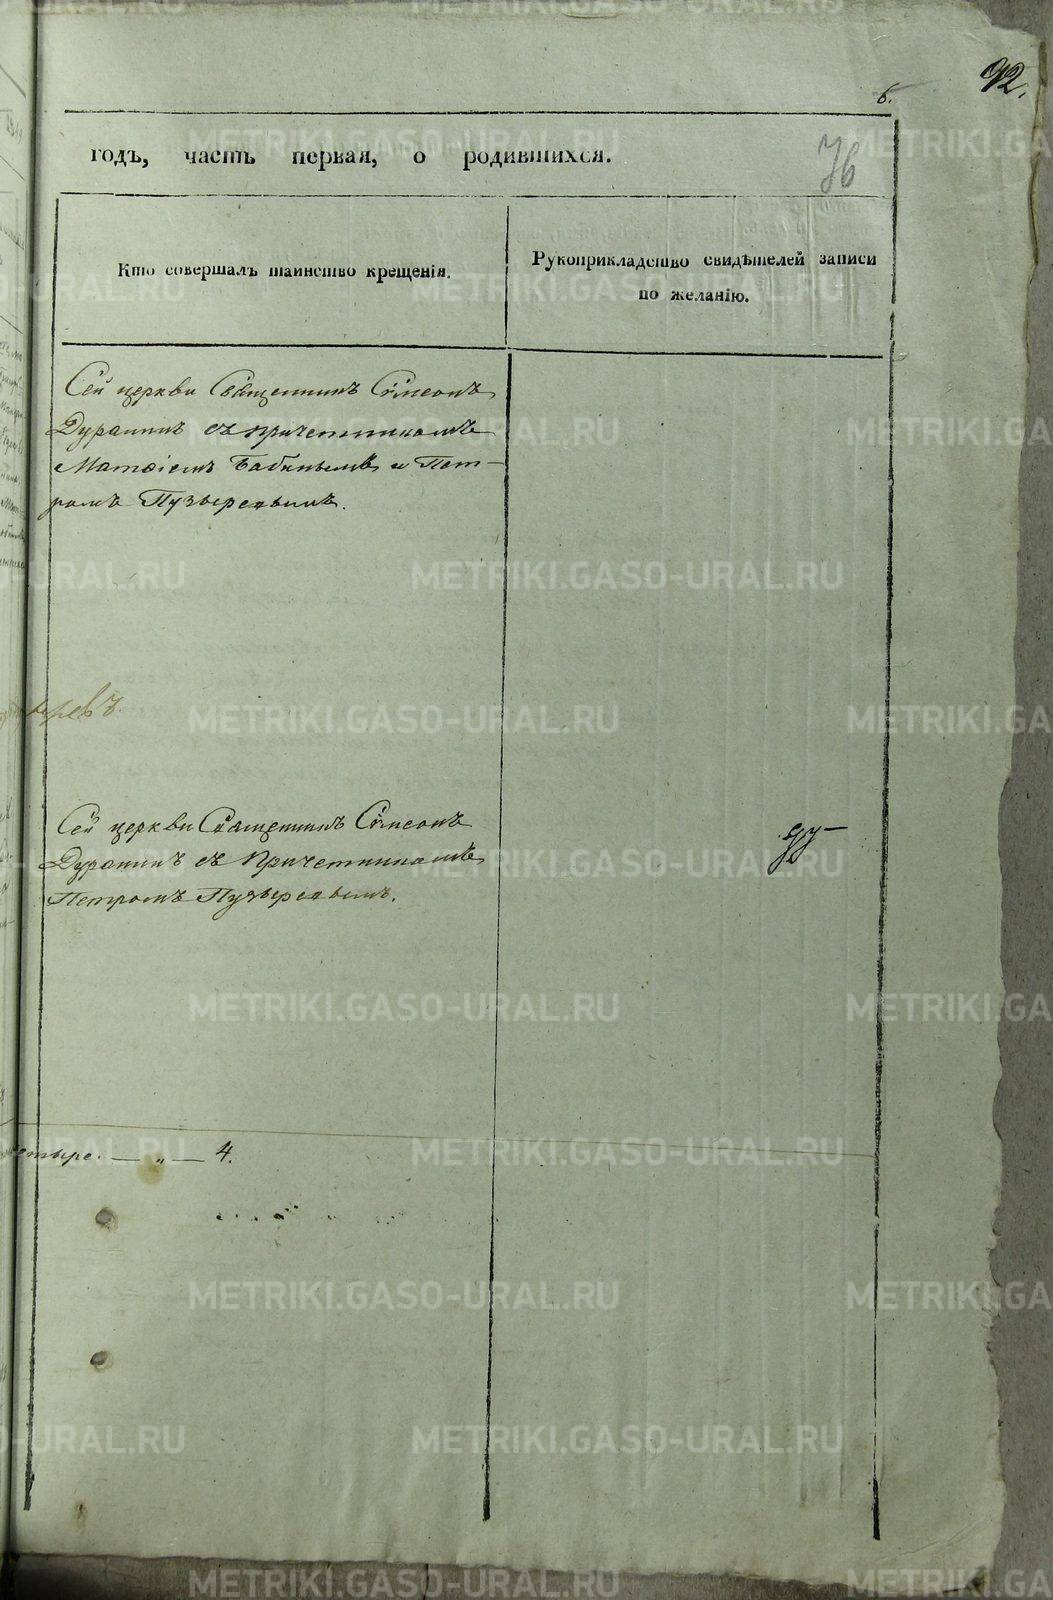 92.
6.
76
годъ, часть первая, о родившихся.
Кто совершалъ таинство крещенія.
Рукоприкладство свидѣтелей записи
по желанію.
Сей церкви Священникъ Сѵмеонъ
Дурапинъ съ причетникомъ
Матѳіемъ Бабинымъ и Пет-
ромъ Пузыревымъ.
Сей церкви Священникъ Сѵмеонъ
Дурапинъ съ причетникомъ
Петромъ Пузыревымъ.
етыре. — „ — 4.
METRIKI.GASO-URAL.RU